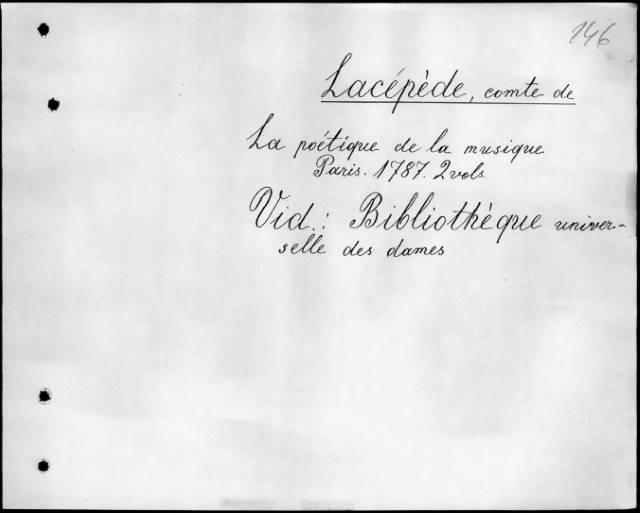 146
Lacépède, comte de
La poétique de la musique
Paris. 1787. 2 vols.
Vid.: Bibliothèque univer-
selle des dames